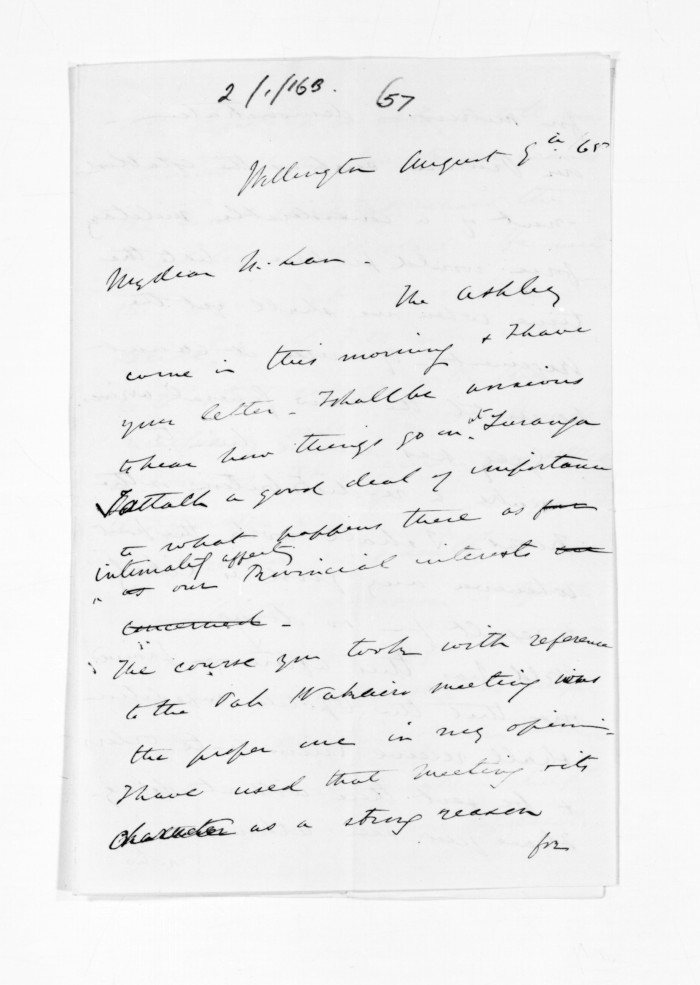 2/1/163. 657
Wellington August 9th 65
My dear McLean -
The Ashley
came in this morning & I have
your letter - I shall be anxious
to hear how things go in Turanga
I attach a good deal of importance
to what happens there as far
intimately affects
as our Provincial interests are
concerned -
The course you took with reference
to the Pah Wakairo meeting was
the proper one in my opinion -
I have used that meeting & its
character as a strong reason
for